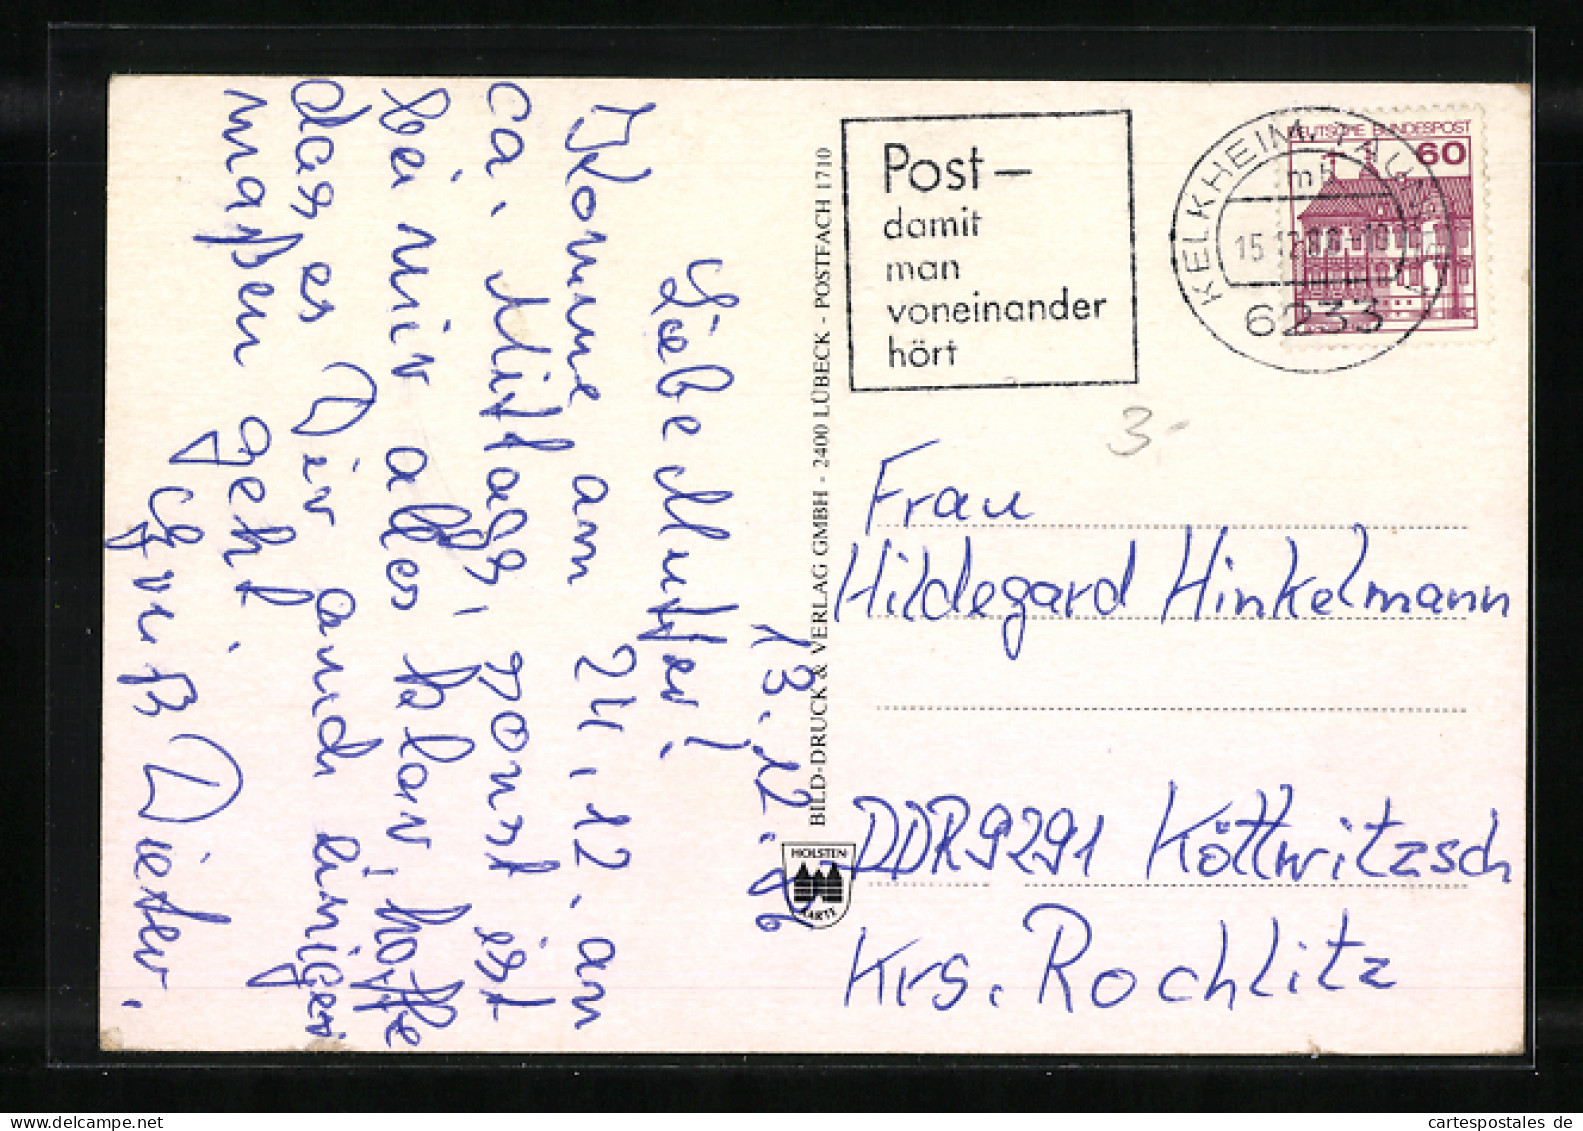 13.12.86
Liebe Mutter!
Komme am 24.12. an
ca. Mittags, sonst ist
bei mir alles klar, hoffe
das es Dir auch einiger
maßen geht.
Gruß Dieter.
BILD-DRUCK & VERLAG GMBH - 2400 LÜBECK - POSTFACH 1710
HOLSTEN
KARTE
Post –
damit
man
voneinander
hört
KELKHEIM, TAUNUS 1
mb
15.12.86.-18
6233
DEUTSCHE BUNDESPOST
60
3-
Frau
Hildegard Hinkelmann
DDR 9291 Köttwitzsch
Krs. Rochlitz
www.delcampe.net
cartespostales de